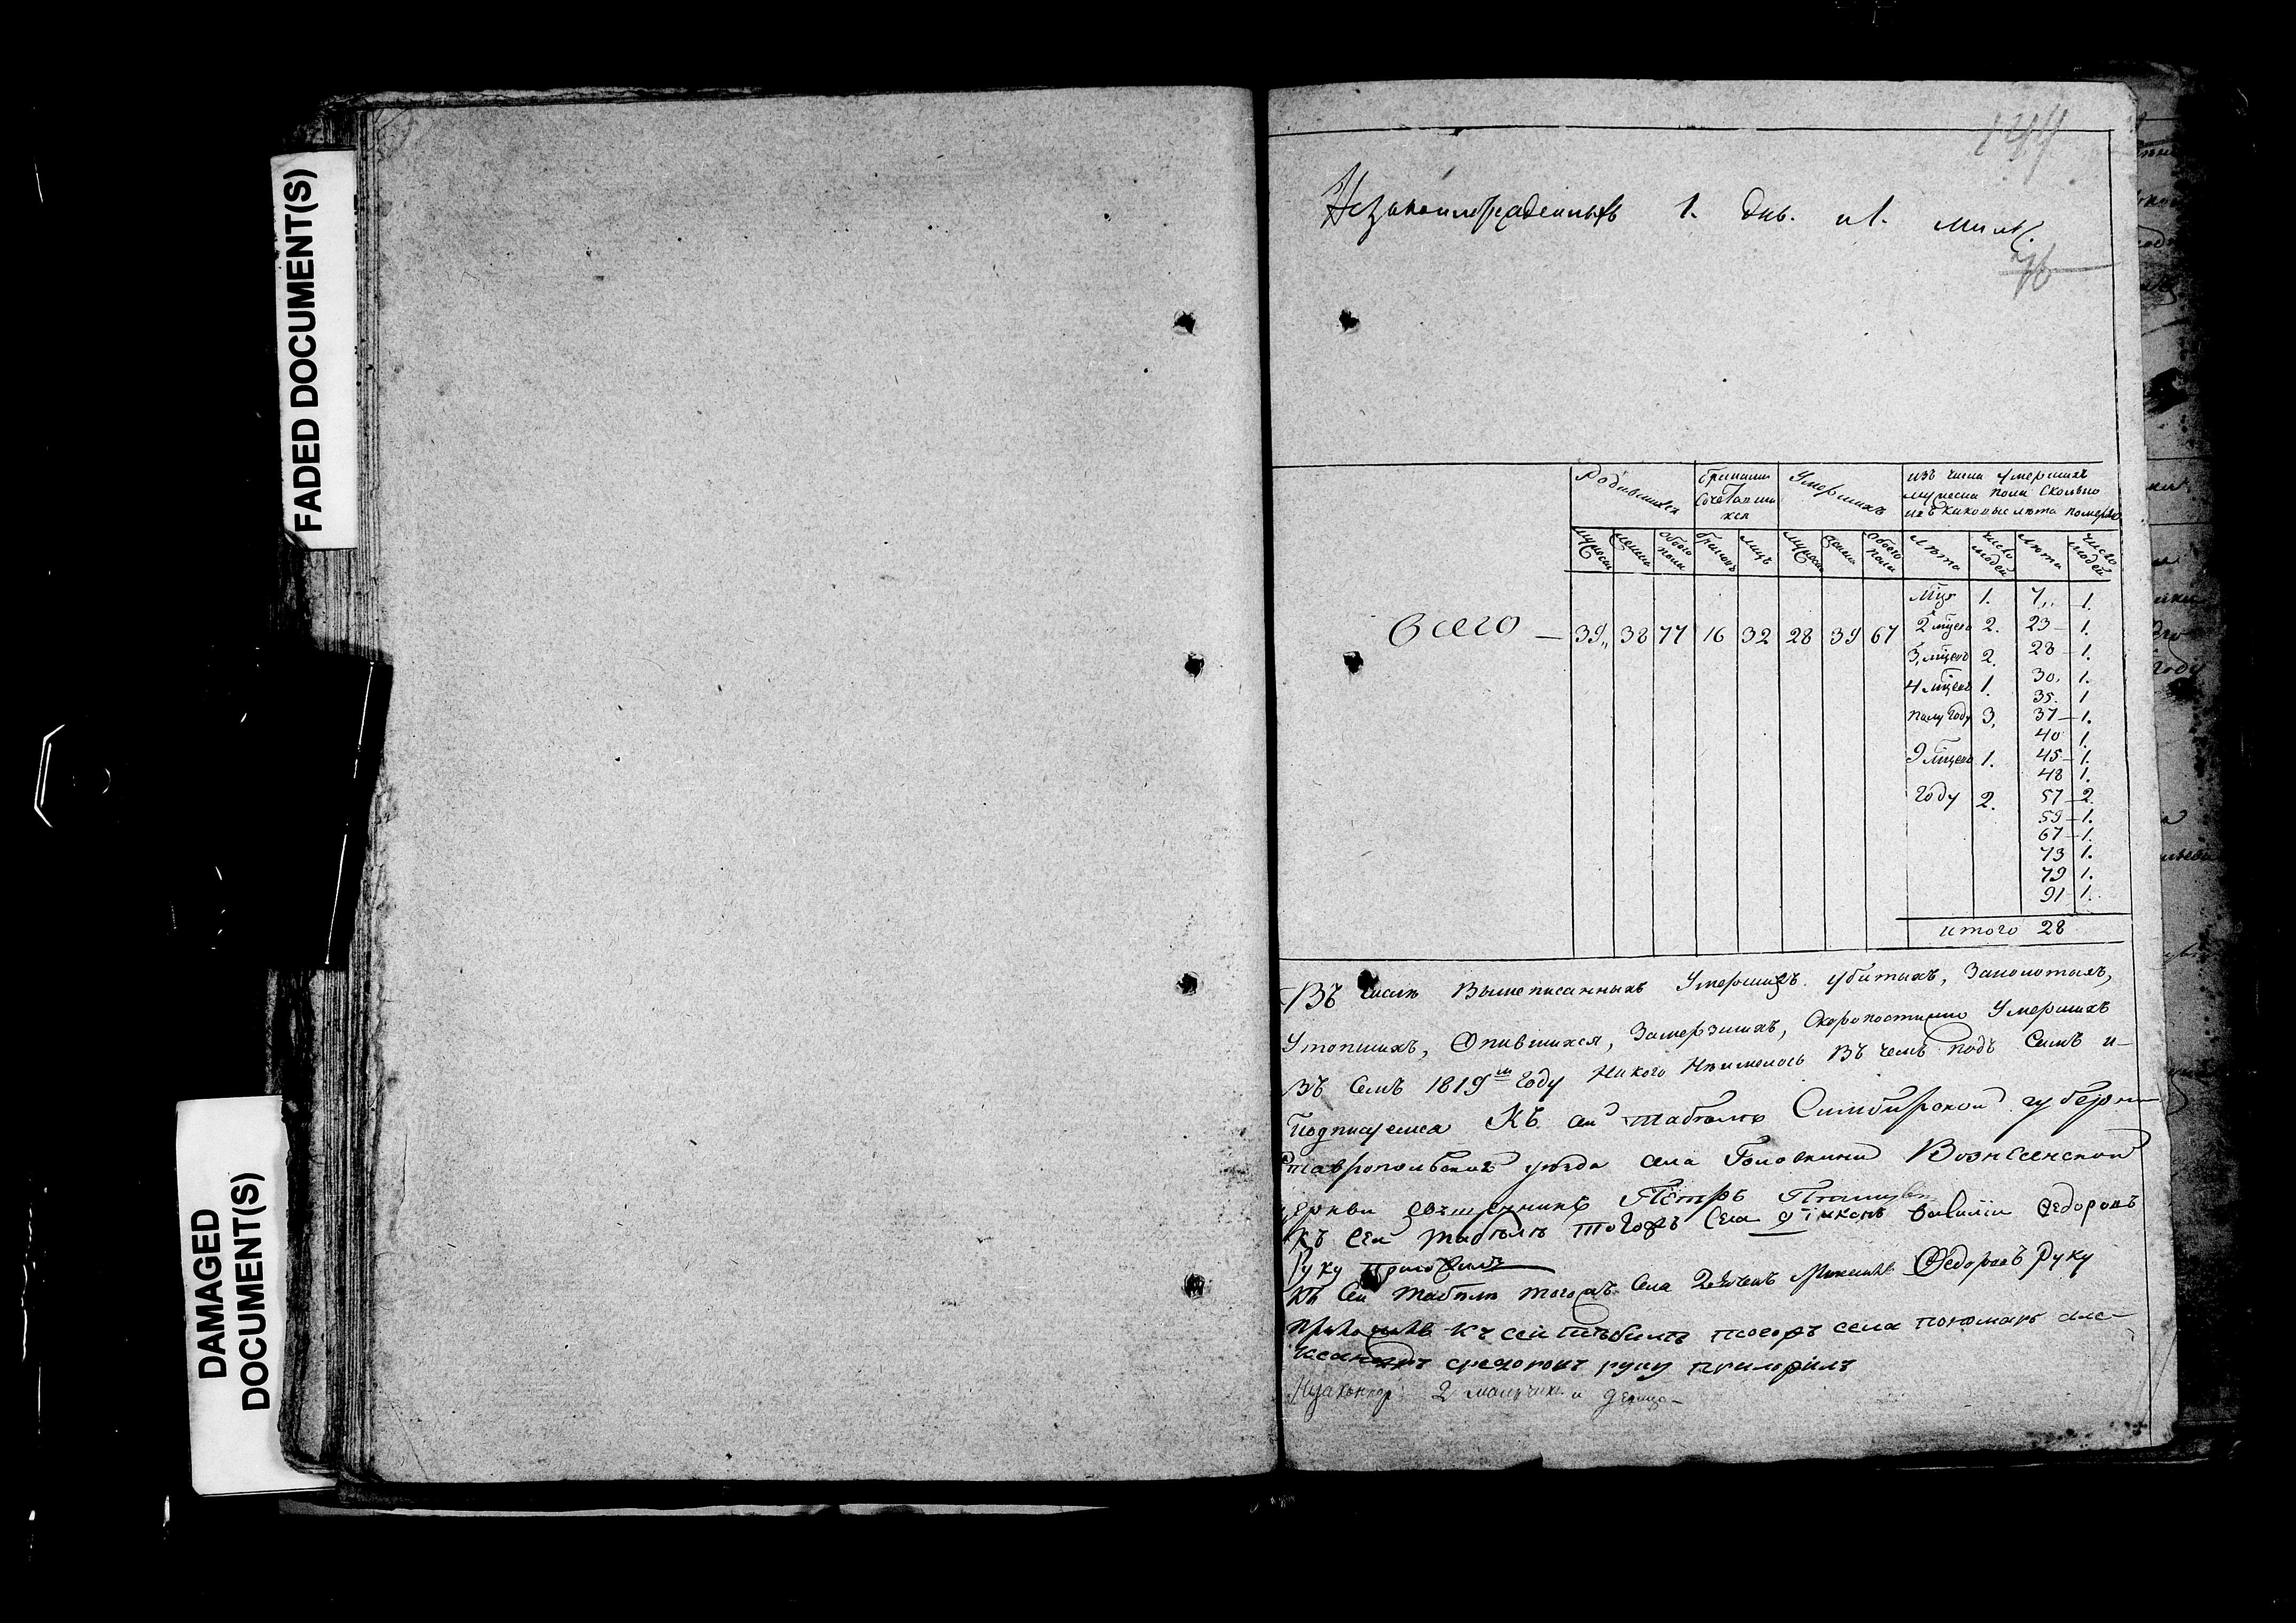 FADED DOCUMENT(S)
DAMAGED
DOCUMENT(S)
144
Незаконнорожденныхъ 1. дѣв. и 1. мал.
Родившихся
браками сочетавшихся
Умершихъ
изъ числа умершихъ
мужеска пола сколько
и въ каковые лѣта померло
мужеска женска обоего пола браковъ лицъ мужеска женска обоего пола лѣта число людей лѣта число людей
Всего — 39 38 77 16 32 28 39 67
Мцъ 1. 7 1.
2 мцевъ 2. 23 1.
3 мцевъ 2. 28 1.
4 мцевъ 1. 30 1.
35. 1
полу году 3. 37 1.
40 1.
9 мцевъ 1. 45 1.
48 1.
году 2. 57 2.
59 1.
67 1.
73 1.
79 1.
91 1.
итого 28
Въ числѣ вышеписанныхъ умершихъ убитыхъ, заколотыхъ,
утопшихъ, опившихся, замерзшихъ, скоропостижно умершихъ
въ семъ 1819м году никого неимелось въ чемъ подъ симъ и
подписуемся Къ сей табѣлѣ Симбирской губерни
ставропольскаго уѣзда села Головкина Вознесенской
церкви священникъ Пётръ
къ сей табѣлѣ тогожъ села діаконъ Василіи Федоровъ
руку приложилъ
къ сей табѣлѣ тогожъ села дьячекъ Федоровъ руку
приложилъ къ сей табѣлѣ тогожъ села пономарь але
ксандръ руку приложилъ
2 мальчика и девица